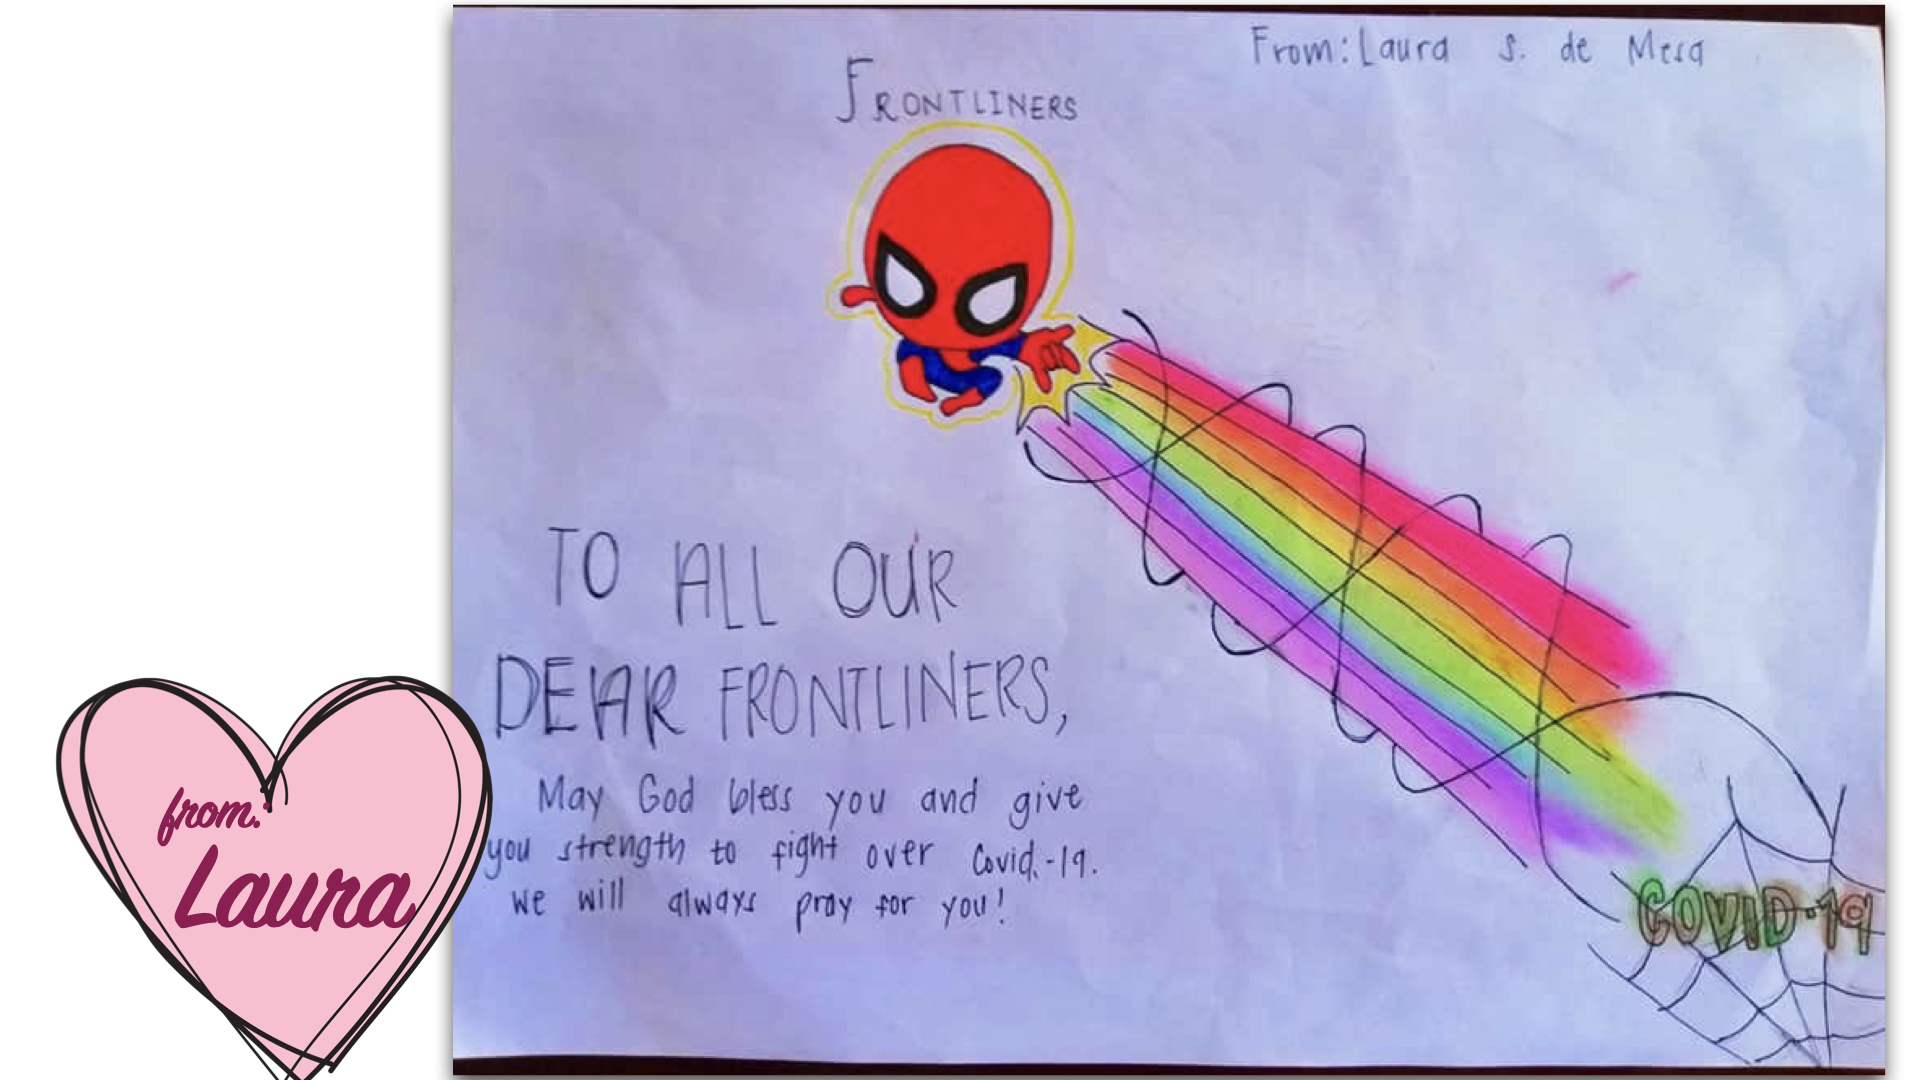 From: Laura S. de Mesa
FRONTLINERS
TO ALL OUR
DEAR FRONTLINERS,
May God bless you and give
you strength to fight over Covid.-19.
we will always pray for you!
COVID-19
from:
Laura